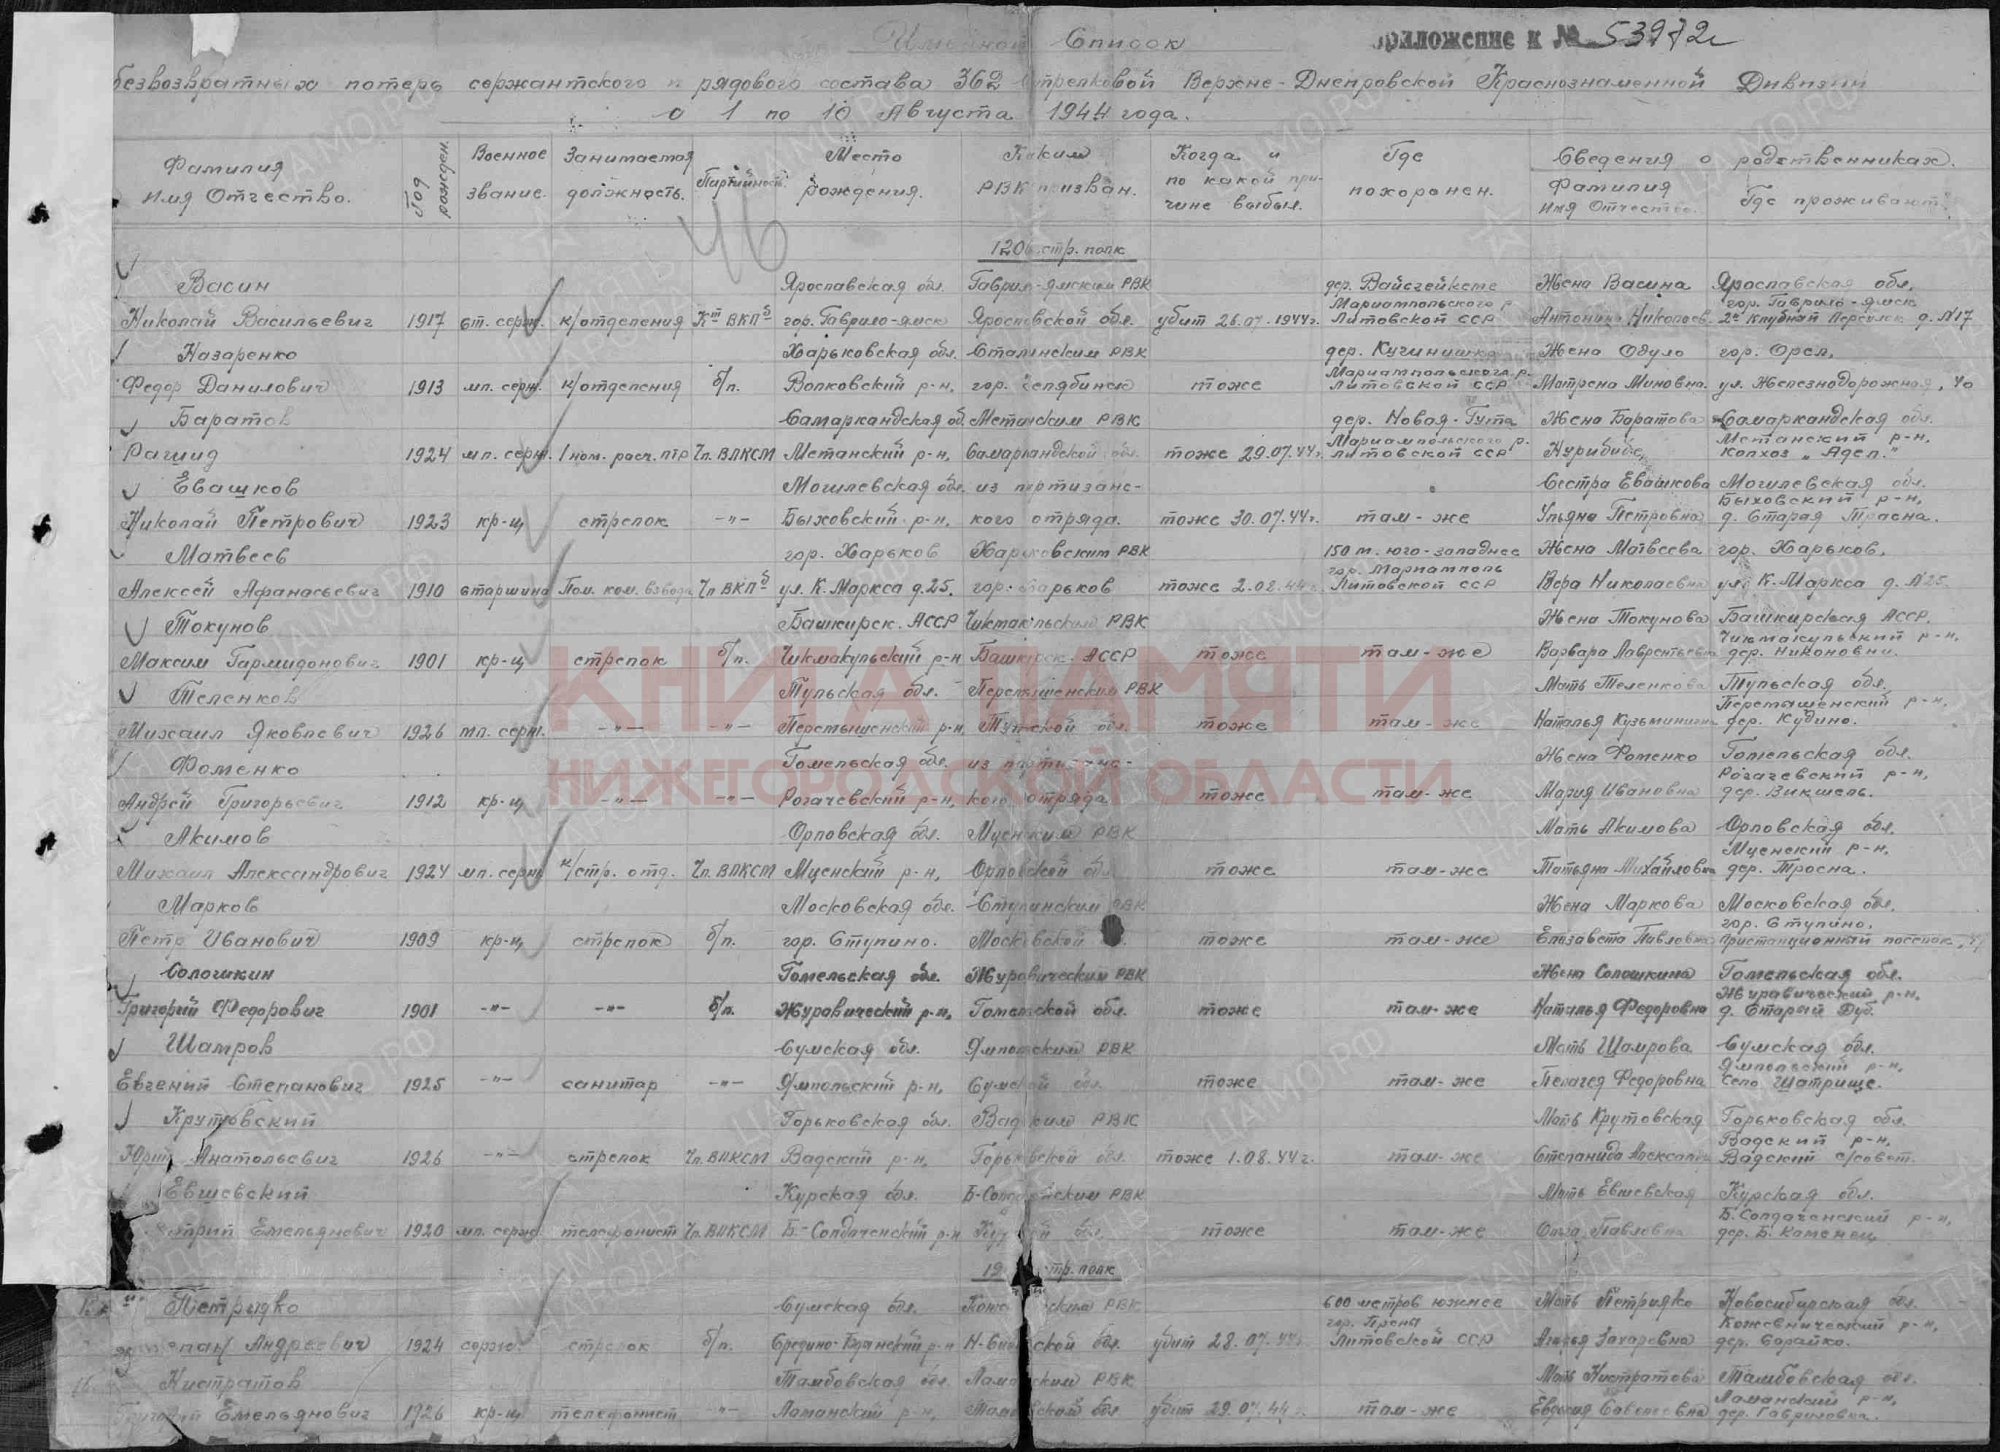 Именной Список
Приложение к № 53972с
безвозвратных потерь сержантского и рядового состава 362 Стрелковой Верхне-Днепровской Краснознаменной Дивизии
с 1 по 10 Августа 1944 года.
Фамилия Имя Отчество. Год рожден. Военное звание. Занимаемая должность. Партийность. Место рождения. Каким РВК призван. Когда и по какой причине выбыл. Где похоронен. Сведения о родственниках.
Фамилия Имя Отчество. Где проживают.
46
1206 стр. полк
Васин Ярославская обл. Гаврил-ямским РВК дер. Жена Васина Ярославская обл.
Мариампольского р гор. Гаврило-ямск
Николай Васильевич 1917 ст. серж. к/отделения К-т ВКПб гор. Гаврило-ямск Ярославской обл. убит 26.07.1944г. Литовской ССР Антонина Николаев. 2й Клубный Переулок д. №17
Назаренко Харьковская обл. Сталинским РВК дер. Жена Одуло гор. Орел,
Мариампольского р.
Федор Данилович 1913 мл. серж. к/отделения б/п. Волковский р-н, гор. Челябинск тоже Литовской ССР Матрена Миновна. ул. Железнодорожная, 40
Баратов Самаркандская об. Метанским РВК дер. Новая-Гута Жена Баратова Самаркандская обл.
Мариампольского р. Метанский р-н,
Рашид 1924 мл. серж. 1 ном. расч. ПТР Чл. ВЛКСМ Метанский р-н, Самаркандской обл. тоже 29.07.44г. Литовской ССР Нурибиби колхоз „Адел."
Евашков Могилевская обл. из партизанс- Сестра Евашкова Могилевская обл.
Быховский р-н,
Николай Петрович 1923 кр-ц стрелок -"- Быховский р-н, кого отряда. тоже 30.07.44г. там-же Ульяна Петровна д. Старая Трасна.
Матвеев гор. Харьков Харьковским РВК 150 м. юго-западнее Жена Матвеева гор. Харьков,
гор. Мариамполь
Алексей Афанасьевич 1910 старшина Пом. ком. взвода Чл ВКПб ул. К. Маркса д. 25. гор. Харьков тоже 2.08.44г. Литовской ССР Вера Николаевна ул. К. Маркса д. №25
Токунов Башкирск. АССР Чикмакульским РВК Жена Токунова Башкирская АССР.
Чикмакульский р-н,
Максим Гармидонович 1901 кр-ц стрелок б/п. Чикмакульский р-н Башкирск. АССР тоже там-же Варвара Лаврентьевна дер. Никоновка.
Теленков Тульская обл. Перемышенским РВК Мать Теленкова Тульская обл.
Перемышенский р-н.
Михаил Яковлевич 1926 мл. серж. -"- -"- Перемышенский р-н, Тульской обл. тоже там-же Наталья Кузьминична дер. Кудино.
Фоменко Гомельская обл. из партизанс- Жена Фоменко Гомельская обл.
Рогачевский р-н,
Андрей Григорьевич 1912 кр-ц -"- -"- Рогачевский р-н, кого отряда тоже там-же Мария Ивановна дер. Викшель.
Акимов Орловская обл. Мценским РВК Мать Акимова Орловская обл.
Мценский р-н.
Михаил Александрович 1924 мл. серж. к/стр. отд. Чл. ВЛКСМ Мценский р-н, Орловской обл. тоже там-же Татьяна Михайловна дер. Тросна.
Марков Московская обл. Ступинским РВК Жена Маркова Московская обл.
гор. Ступино,
Петр Иванович 1909 кр-ц стрелок б/п. гор. Ступино. Московской тоже там-же Елизавета Павловна пристанционный поселок,
Сологшкин Гомельская обл. Журавическим РВК Жена Солошкина Гомельская обл.
Журавический р-н,
Григорий Федорович 1901 -"- -"- б/п. Журавический р-н, Гомельской обл. тоже там-же Наталья Федоровна д. Старый Дуб.
Шамров Сумская обл. Ямпольским РВК Мать Шамрова Сумская обл.
Ямпольский р-н,
Евгений Степанович 1925 -"- санитар -"- Ямпольский р-н, Сумской обл. тоже там-же Пелагея Федоровна село Шатрище.
Крутовский Горьковская обл. Вадским РВК Мать Крутовская Горьковская обл.
Вадский р-н,
Юрий Анатольевич 1926 -"- стрелок Чл. ВЛКСМ Вадский р-н, Горьковской обл. тоже 1.08.44г. там-же Степанида Вадский с/совет.
Евшевский Курская обл. Б-Солдатским РВК Мать Евшевская Курская обл.
Б. Солдаченский р-н,
Емельянович 1920 мл. серж. телефонист Чл. ВЛКСМ Б-Солдаченский р-н обл. тоже там-же Ольга Павловна дер. Б. Каменец
стр. полк
Петрияко Сумская обл. РВК 600 метров южнее Мать Петрияко Новосибирская обл.
гор. Прена Кожевнический р-н,
Андреевич 1924 серж. стрелок б/п. Средино-Будянский р-н обл. убит 28.07.44г. Литовской ССР Захаровна дер.
Кистратов Тамбовская обл. РВК Мать Кистратова Тамбовская обл.
Ламанский р-н,
Григорий Емельянович 1926 кр-ц телефонист -"- Ламанский р-н, обл. убит 29.07.44г. там-же Евдокия Савельевна дер. Гавриловка.
КНИГА ПАМЯТИ
НИЖЕГОРОДСКОЙ ОБЛАСТИ